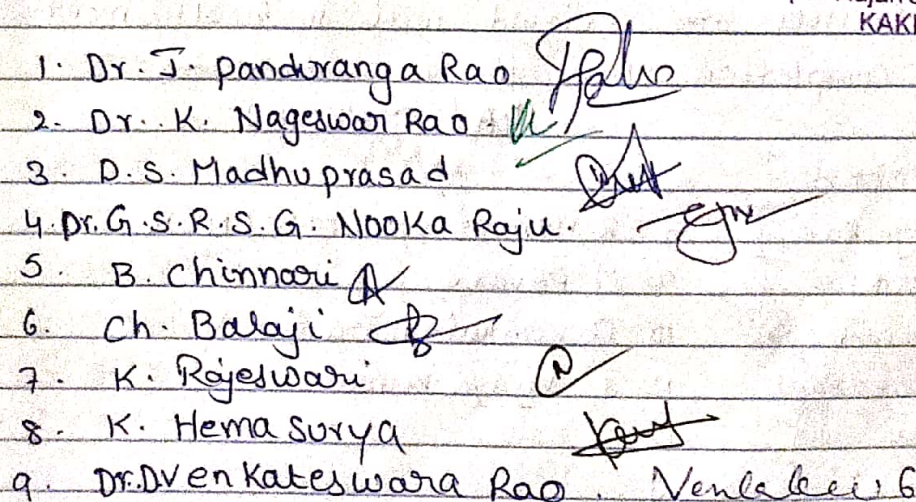 KAK
1. Dr. J. Panduranga Rao
2. Dr. K. Nageswar Rao
3. D. S. Madhuprasad
4. Dr. G. S. R. S. G. Nooka Raju.
5. B. Chinnari
6. Ch. Balaji
7. K. Rajeswari
8. K. Hema Surya
9. Dr. D Venkateswara Rao.